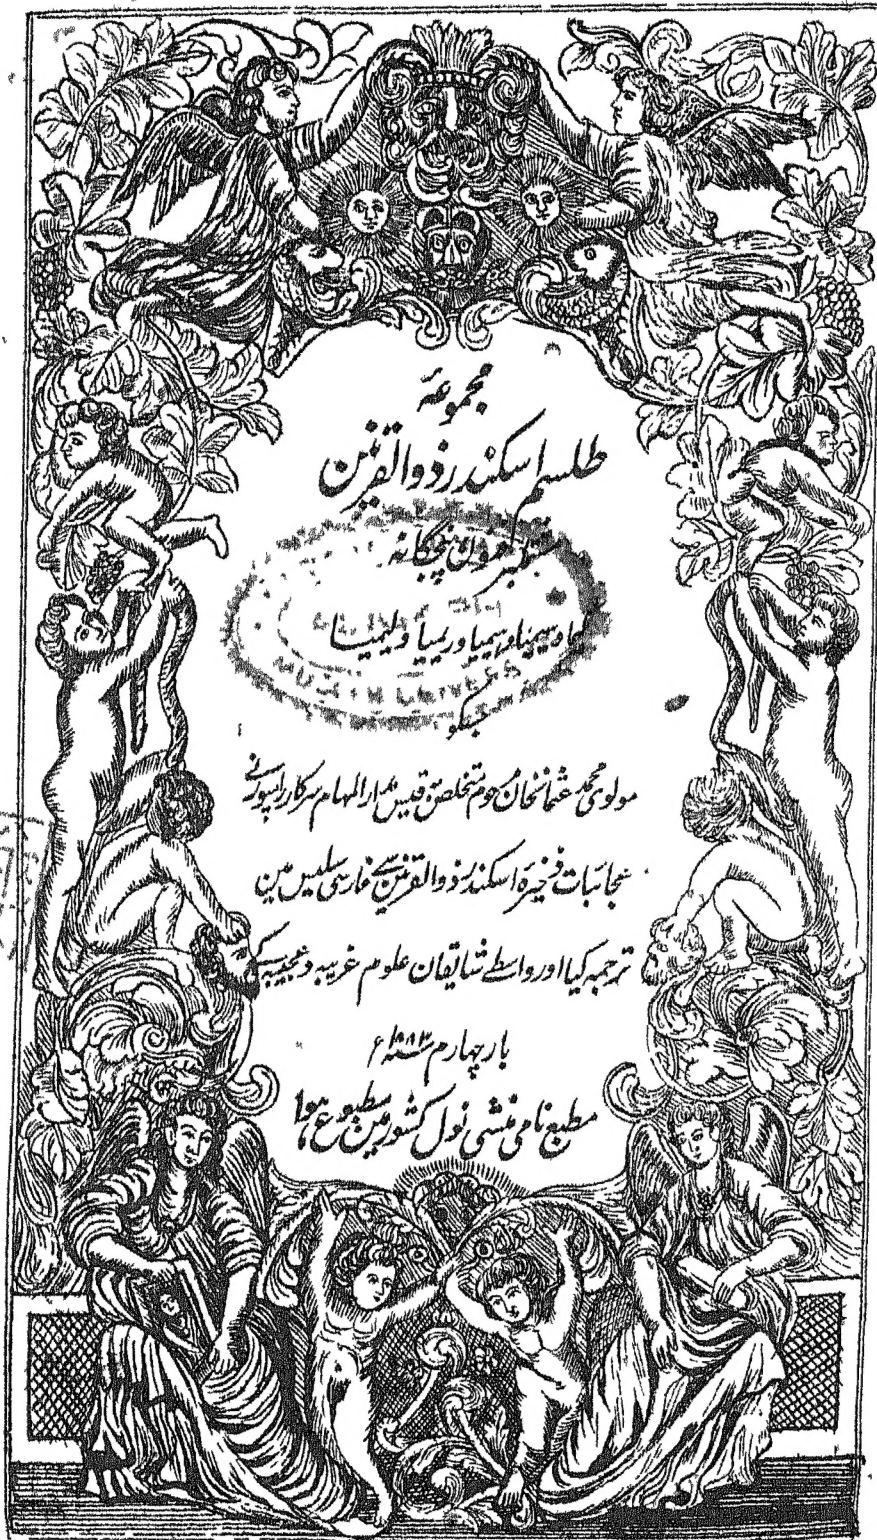 مجموعۂ
طلسم اسکندر ذوالقرنین
پنجگانہ
وسیمیا وریمیا ولیمیا
جسکو
مولوی محمد عثمانخان مرحوم متخلص بہ قیس مدارالمہام سرکار رامپور نے
عجائبات ذخیرۂ اسکندر ذوالقرنین سے فارسی سلیس مین
ترجمہ کیا اور واسطے شائقان علوم غریبہ وعجیبہ کے
بار چہارم ۱۸۸۳ء
مطبع نامی منشی نول کشور مین مطبوع ہوا